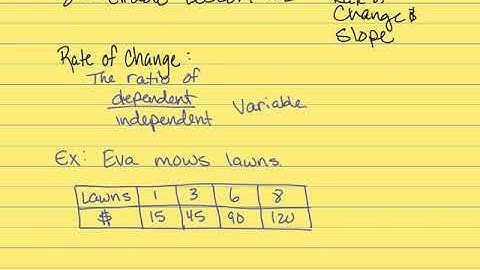 Rate of
Change &
Slope
Rate of Change:
The ratio of
dependent
independent Variable
Ex: Eva mows lawns.
Lawns 1 3 6 8
$ 15 45 90 120